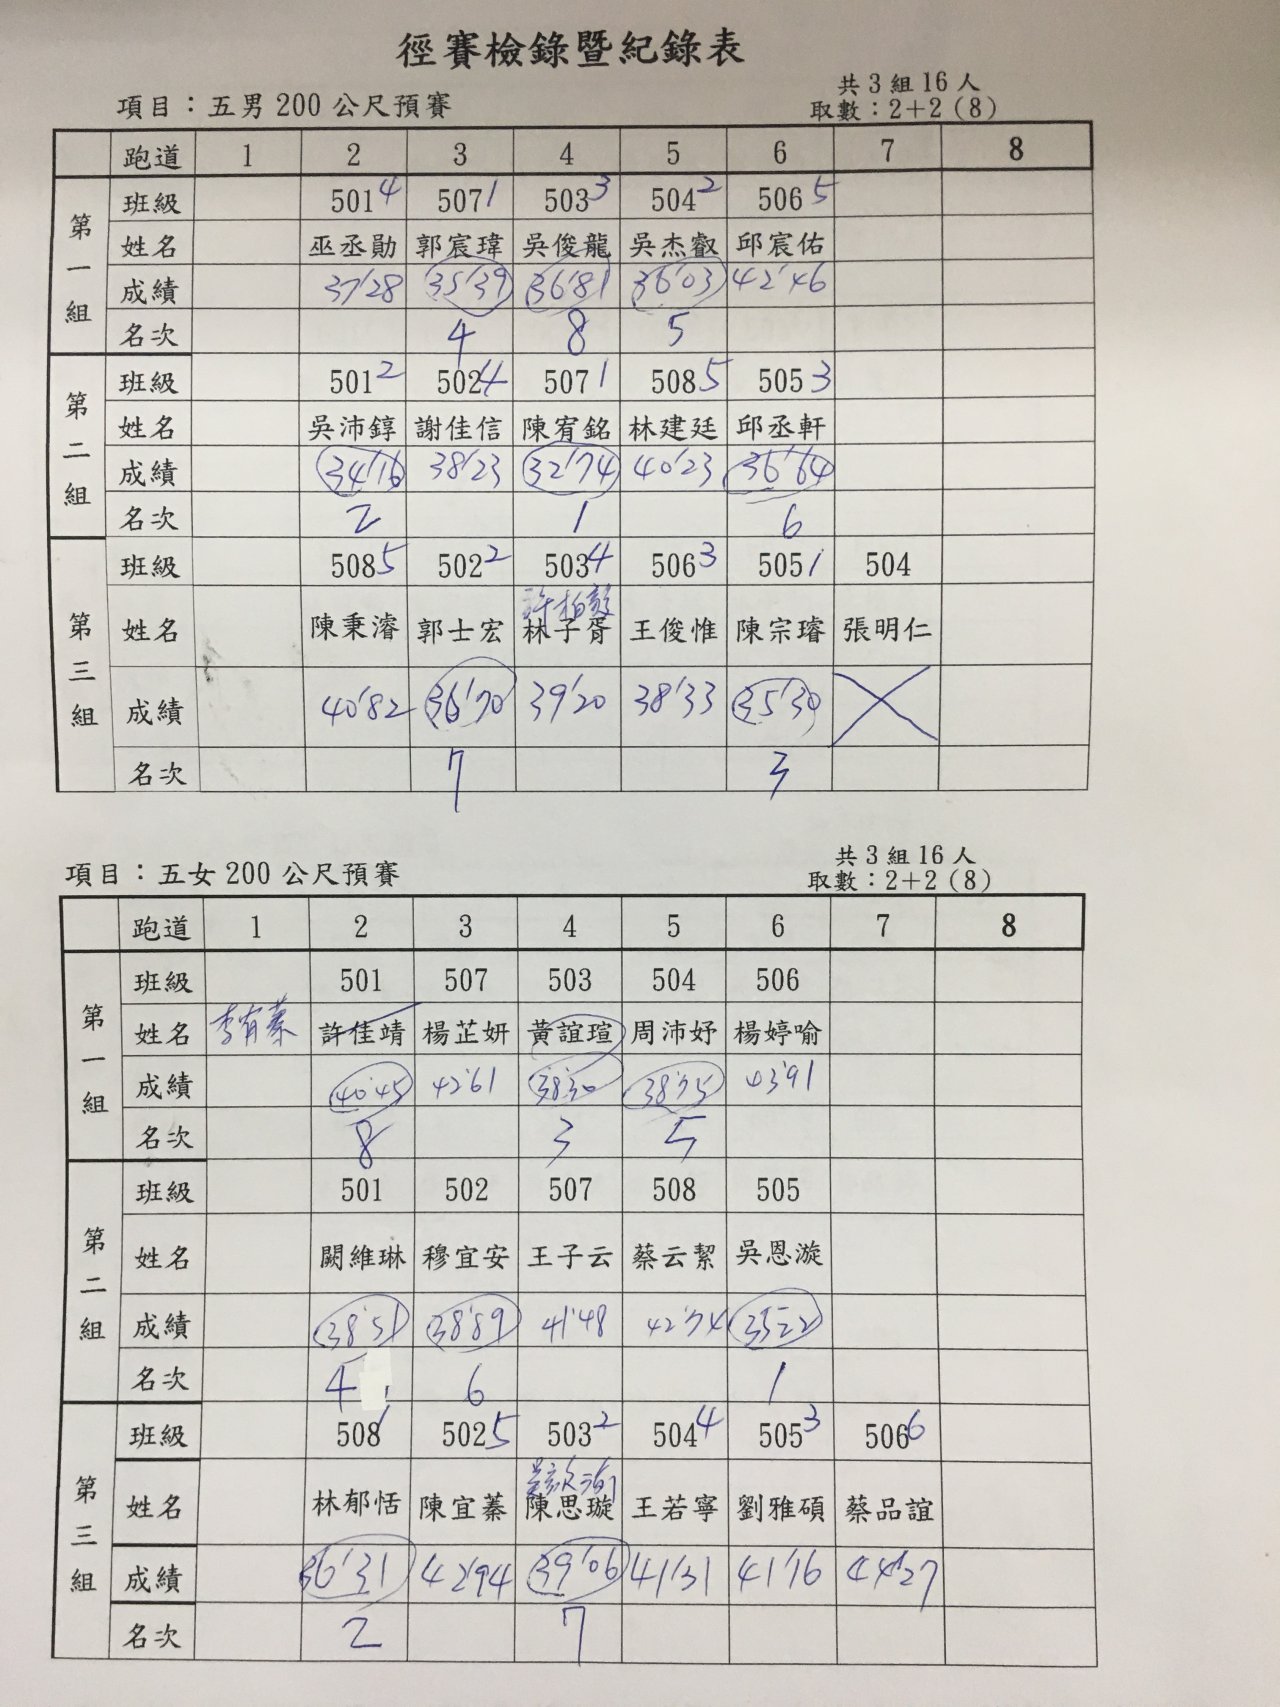 徑賽檢錄暨紀錄表
共3組16人
項目：五男200公尺預賽 取數：2+2（8）
跑道 1 2 3 4 5 6 7 8
第一組
班級 501 4 507 1 503 3 504 2 506 5
姓名 巫丞勛 郭宸瑋 吳俊龍 吳杰叡 邱宸佑
成績 37'28 35'39 36'81 36'03 42'46
名次 4 8 5
第二組
班級 501 2 502 4 507 1 508 5 505 3
姓名 吳沛錞 謝佳信 陳宥銘 林建廷 邱丞軒
成績 34'16 38'23 32'74 40'23 36'64
名次 2 1 6
第三組
班級 508 5 502 2 503 4 506 3 505 1 504
姓名 陳秉濬 郭士宏 林子胥 王俊惟 陳宗璿 張明仁
成績 40'82 36'70 39'20 38'33 35'30
名次 7 3
共3組16人
項目：五女200公尺預賽 取數：2+2（8）
跑道 1 2 3 4 5 6 7 8
第一組
班級 501 507 503 504 506
姓名 李宥蓁 許佳靖 楊芷妍 黃誼瑄 周沛妤 楊婷喻
成績 40'45 42'61 38'30 38'75 43'91
名次 8 3 5
第二組
班級 501 502 507 508 505
姓名 闕維琳 穆宜安 王子云 蔡云絜 吳恩漩
成績 38'51 38'89 41'48 42'74 35'22
名次 4 6 1
第三組
班級 508 1 502 5 503 2 504 4 505 3 506 6
姓名 林郁恬 陳宜蓁 陳思璇 王若寧 劉雅碩 蔡品誼
成績 36'31 42'94 39'06 41'31 41'76 44'27
名次 2 7